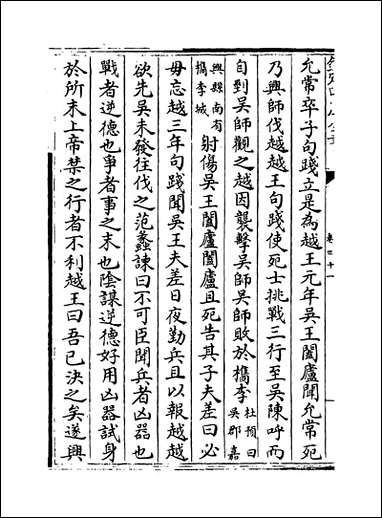 允常卒子句踐立是為越王元年吳王闔廬聞允常死
乃興師伐越越王句踐使死士挑戰三行至吳陳呼而
自剄吳師觀之越因襲擊吳師吳師敗於檇李杜預曰吳郡嘉
興縣南有檇李城射傷吳王闔廬闔廬且死告其子夫差曰必
毋忘越三年句踐聞吳王夫差日夜勤兵且以報越越
欲先吳未發往伐之范蠡諫曰不可臣聞兵者凶器也
戰者逆德也爭者事之末也陰謀逆德好用凶器試身
於所末上帝禁之行者不利越王曰吾已決之矣遂興